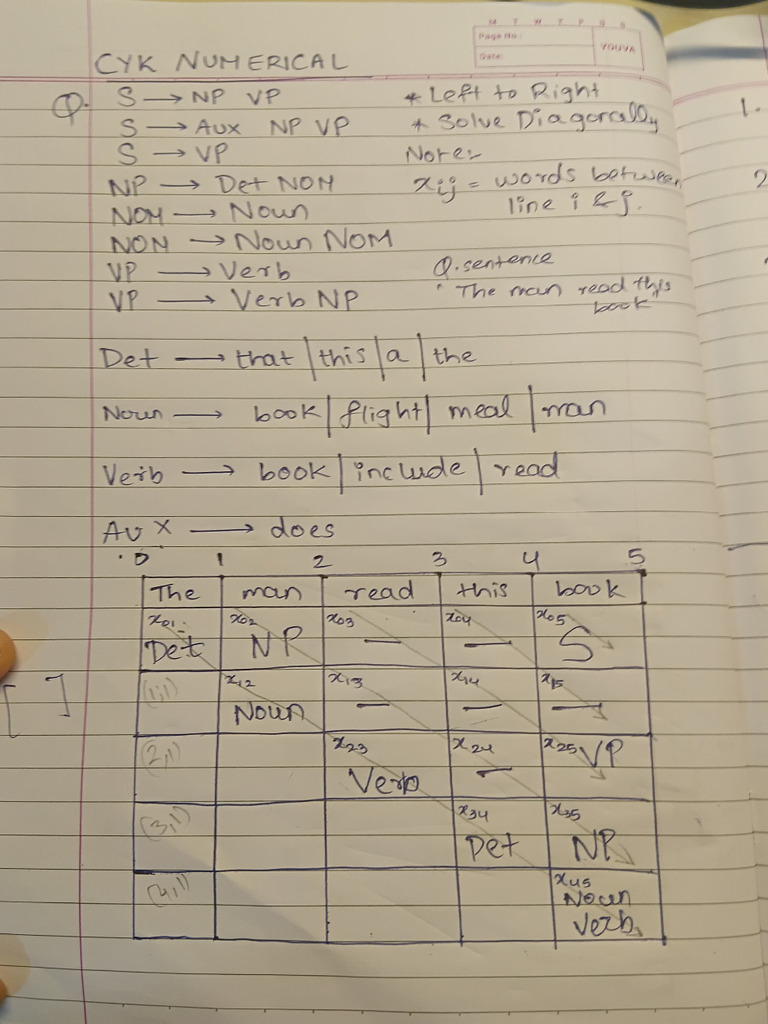 M T W T F S S
Page No.:
Date:
YOUVA
CYK NUMERICAL
Q. S → NP VP
S → Aux NP VP
S → VP
NP → Det NOM
NOM → Noun
NOM → Noun NOM
VP → Verb
VP → Verb NP
* Left to Right
* Solve Diagonally
Note:-
xij = words between
line i & j.
Q. sentence
"The man read this
book"
Det → that | this | a | the
Noun → book | flight | meal | man
Verb → book | include | read
AUX → does
0 1 2 3 4 5
The man read this book
x01 x02 x03 x04 x05
Det NP — — S
(1,1) x12 x13 x14 x15
Noun — — —
(2,1) x23 x24 x25 VP
Verb —
(3,1) x34 x35
Det NP
(4,1) x45
Noun
Verb
[ ]
1.
2